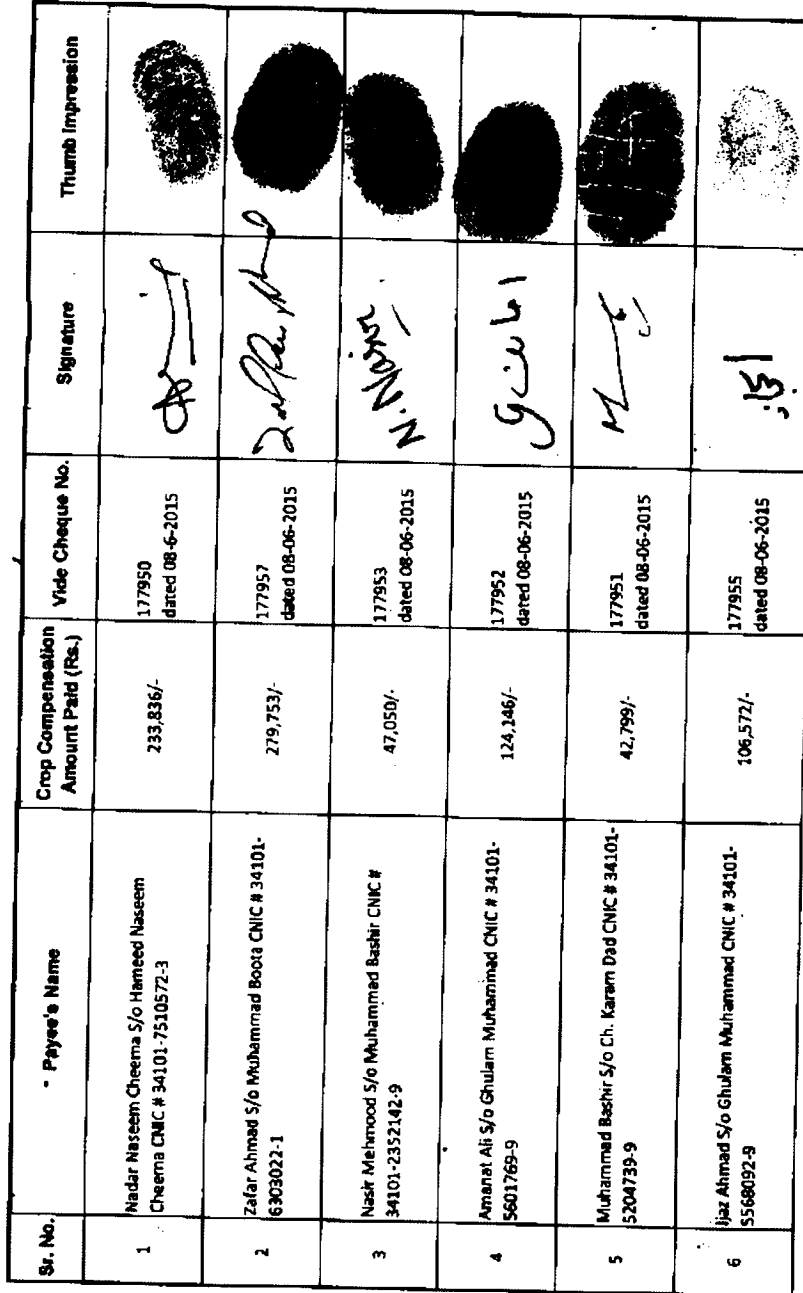 Sr. No.
- Payee's Name
Crop Compensation
Amount Paid (Rs.)
Vide Cheque No.
Signature
Thumb Impression
1
Nadar Naseem Cheema S/o Hameed Naseem
Cheema CNIC # 34101-7510572-3
233,836/-
177950
dated 08-6-2015
2
Zafar Ahmad S/o Muhammad Boota CNIC # 34101-
6303022-1
279,753/-
177957
dated 08-06-2015
3
Nasir Mehmood S/o Muhammad Bashir CNIC #
34101-2352142-9
47,050/-
177953
dated 08-06-2015
N. Nasir
4
Amanat Ali S/o Ghulam Muhammad CNIC # 34101-
5601769-9
124,146/-
177952
dated 08-06-2015
5
Muhammad Bashir S/o Ch. Karam Dad CNIC # 34101-
5204739-9
42,799/-
177951
dated 08-06-2015
6
Ijaz Ahmad S/o Ghulam Muhammad CNIC # 34101-
5568092-9
106,572/-
177955
dated 08-06-2015